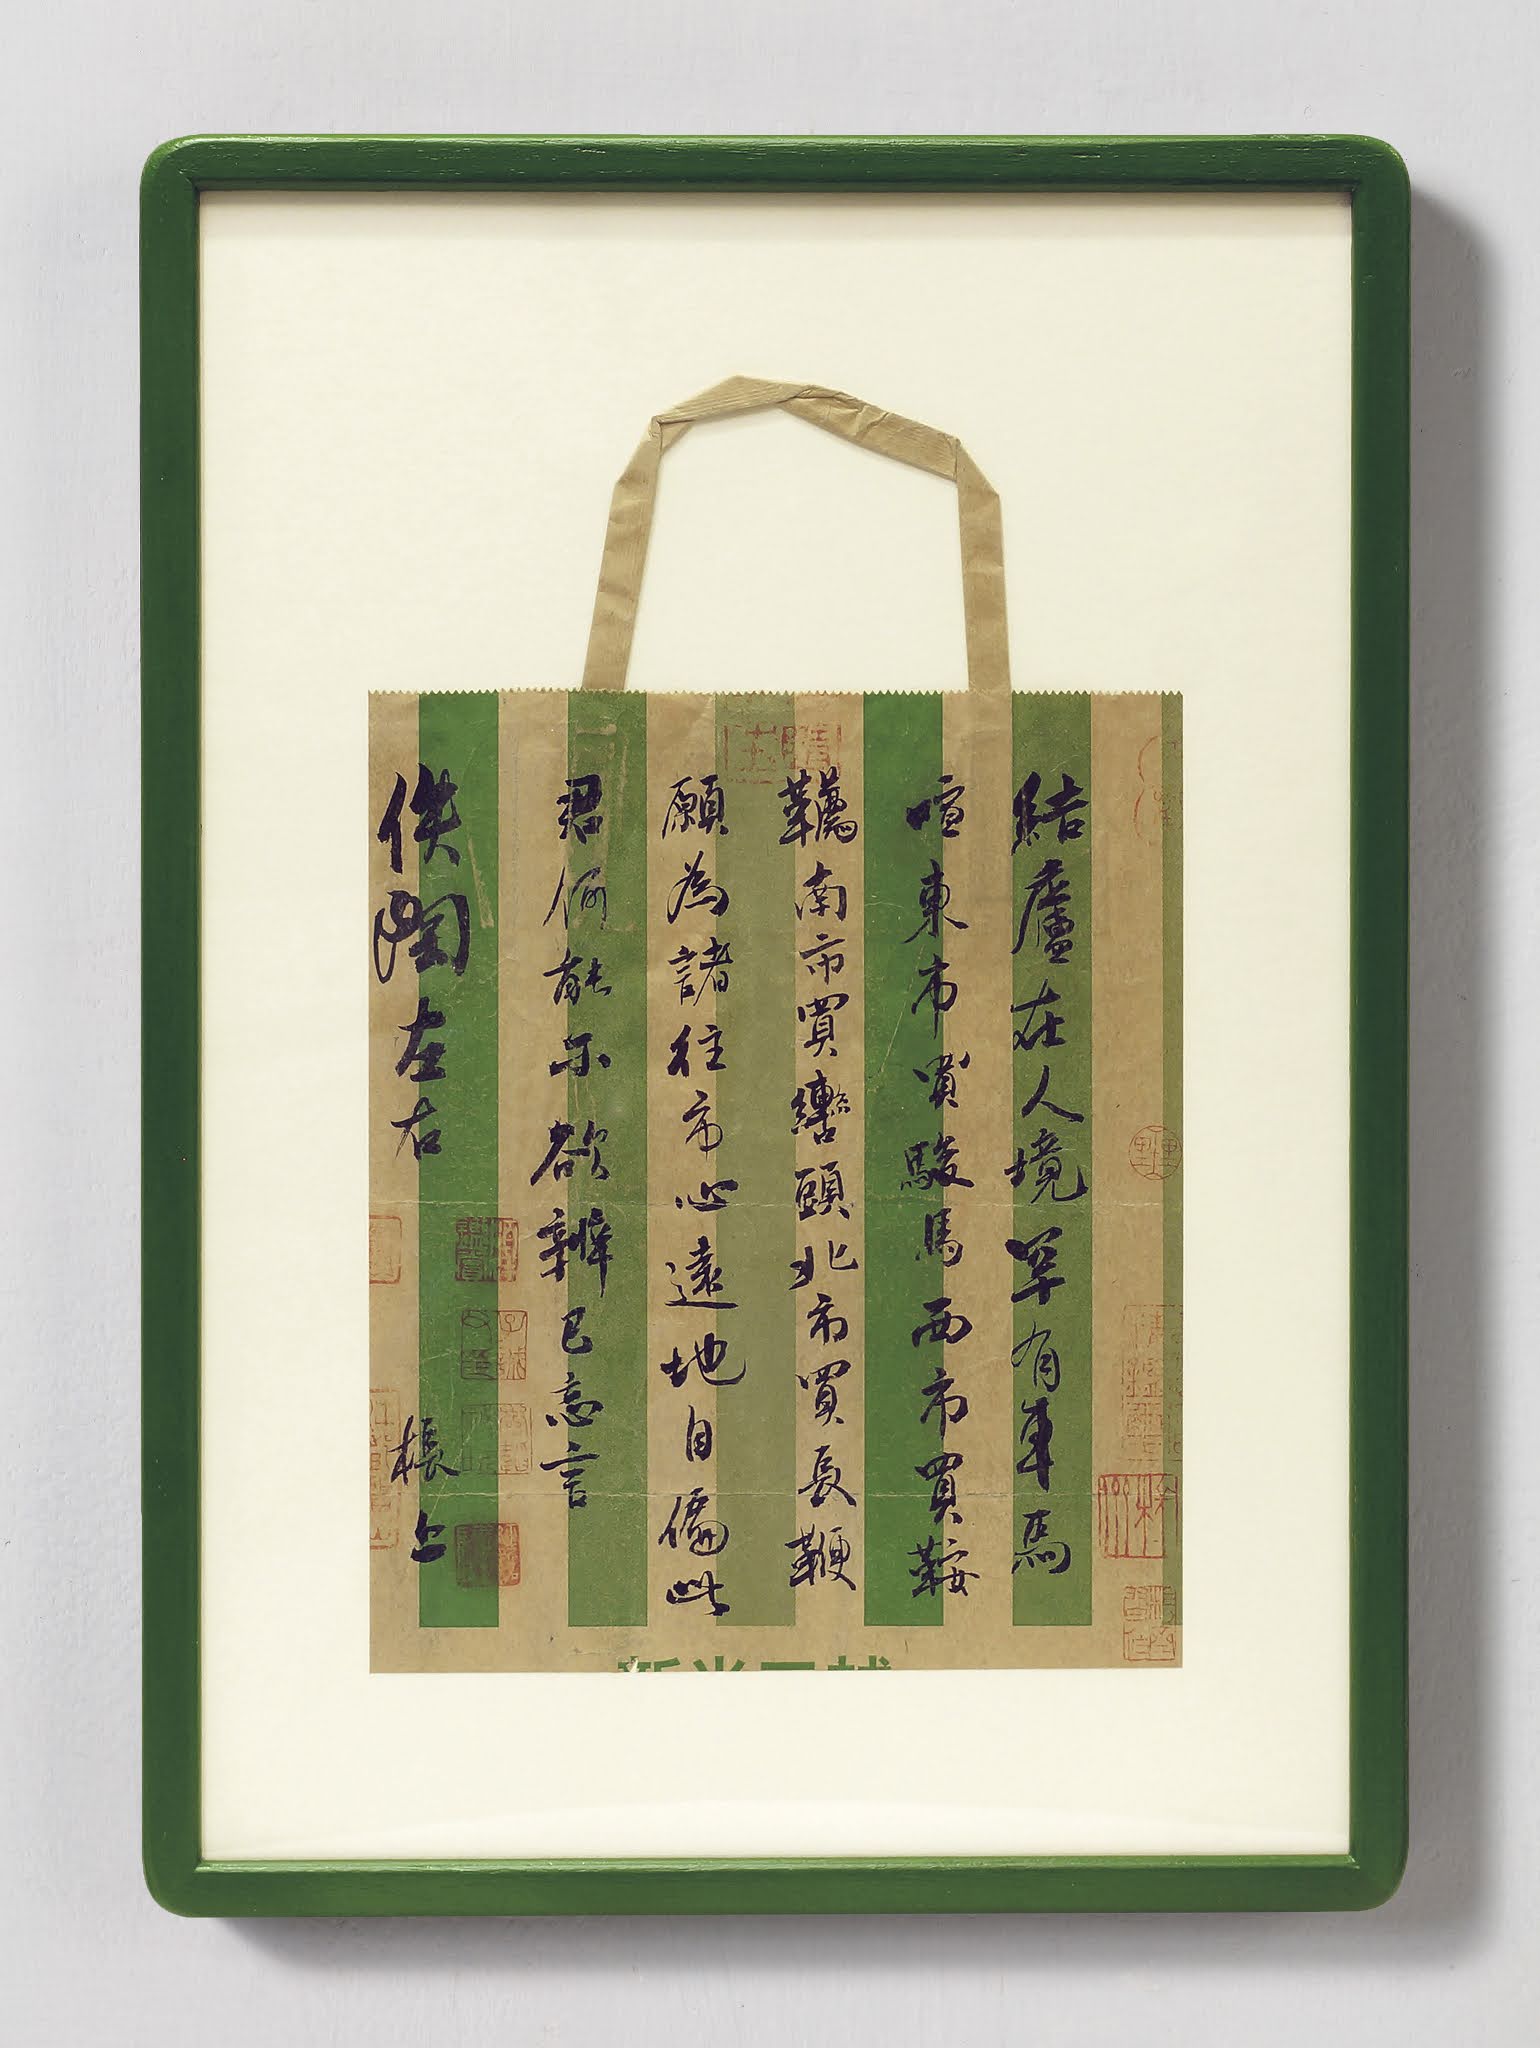 結廬在人境罕有車馬
喧東市買駿馬西市買鞍
韉南市買轡頭北市買長鞭
願為諸往市心遠地自偏此
君何能尔欲辨已忘言
佚陶左右
棖上
新光三越